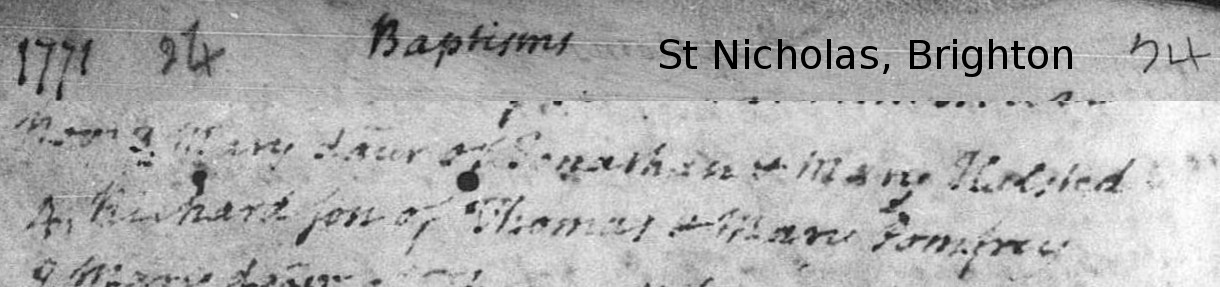 1771 24 Baptisms St Nicholas, Brighton 24
3 Mary daur of Jonathan & Mary
Richard son of Thomas & Mary Pomfrey
9 Mary daur